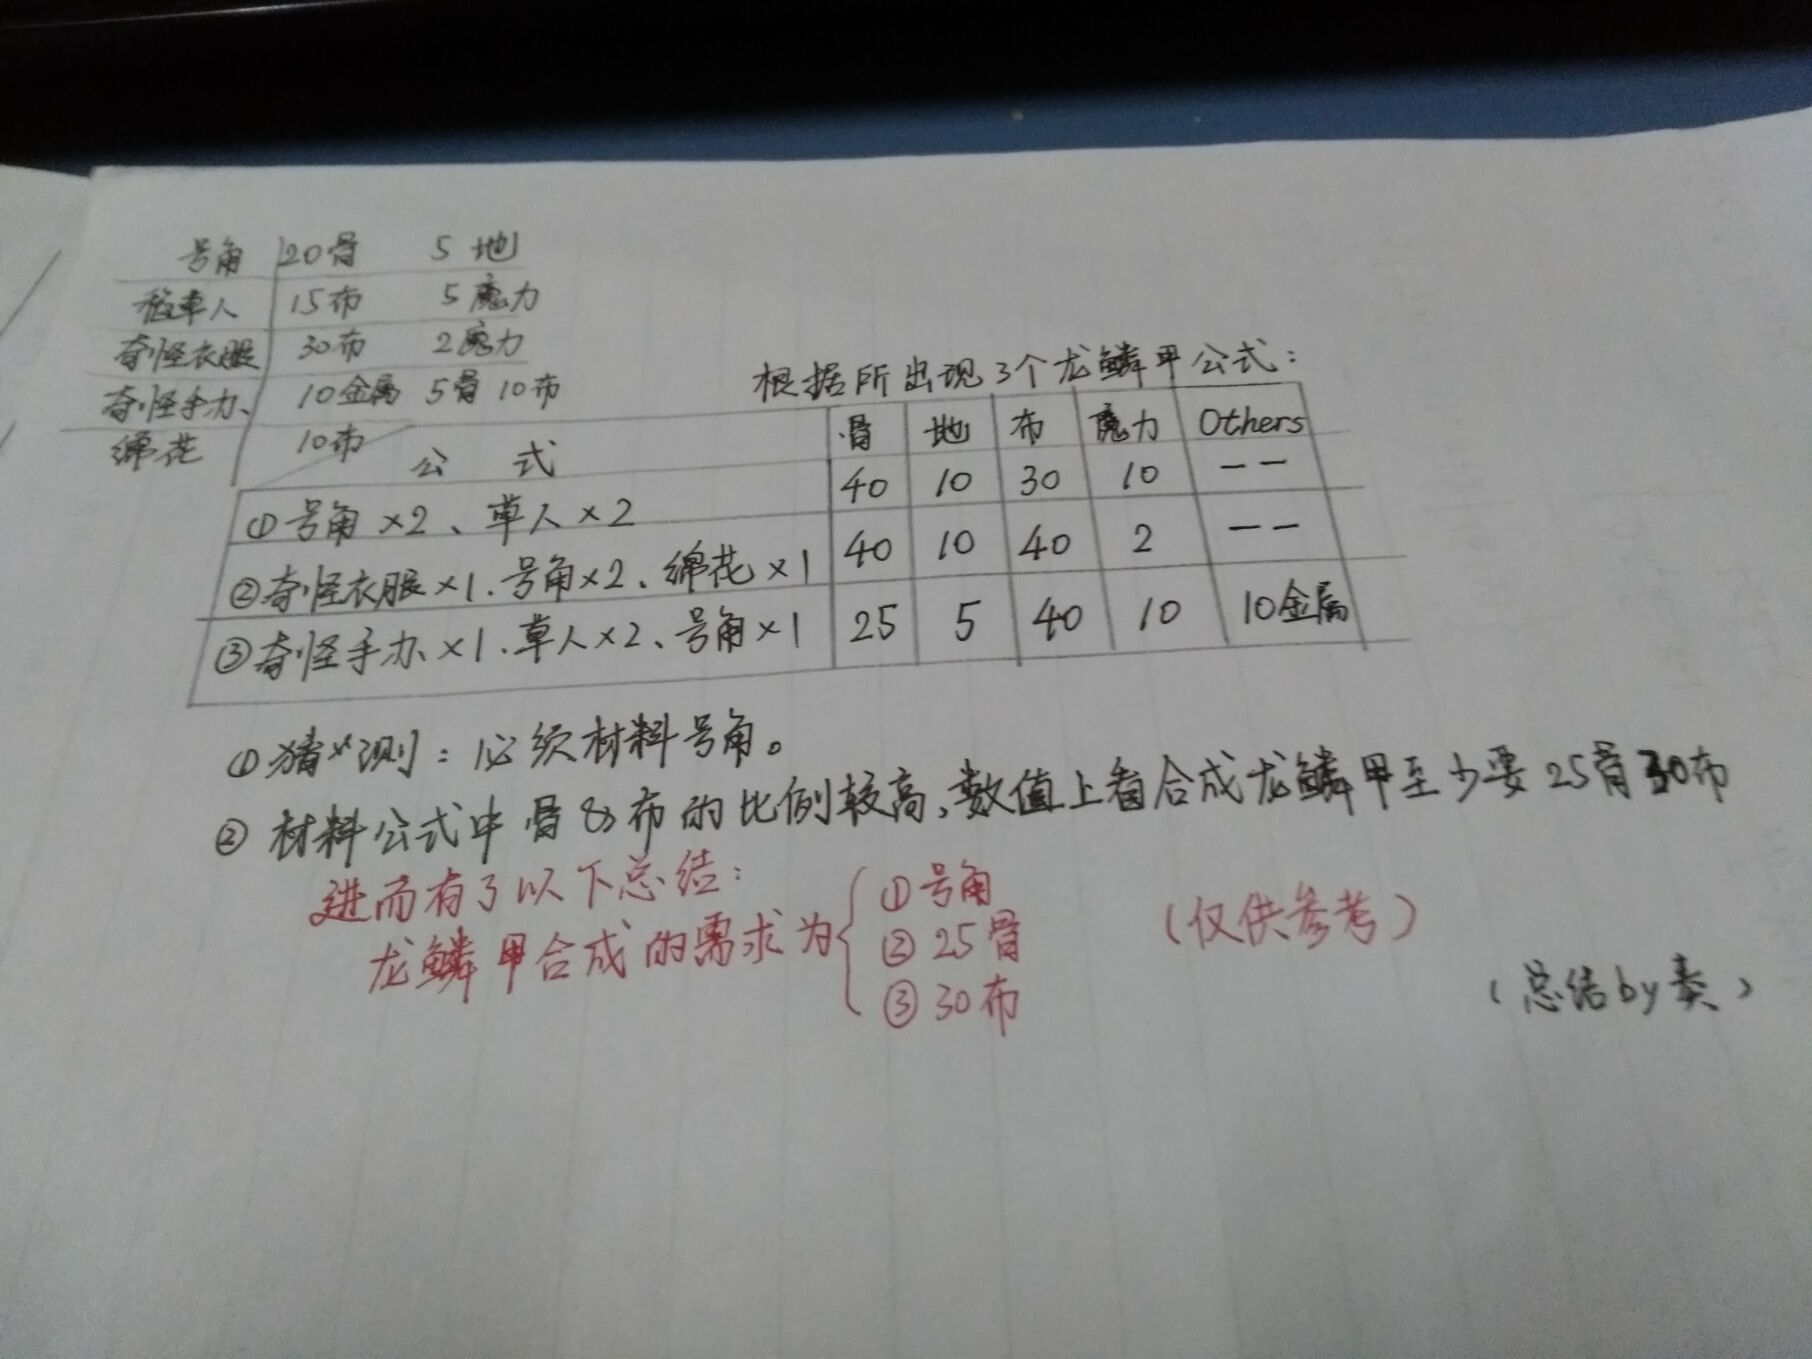 号角 20骨 5 地
稻草人 15布 5 魔力
奇怪衣服 30布 2魔力
奇怪手办、 10金属 5骨 10布
绵花 10布
根据所出现3个龙鳞甲公式：
公 式 骨 地 布 魔力 Others
①号角×2、草人×2 40 10 30 10 ——
②奇怪衣服×1.号角×2、绵花×1 40 10 40 2 ——
③奇怪手办×1.草人×2、号角×1 25 5 40 10 10金属
①猜测：必须材料号角。
②材料公式中骨&布的比例较高,数值上看合成龙鳞甲至少要25骨30布
进而有了以下总结：
龙鳞甲合成的需求为
①号角
②25骨
③30布
（仅供参考）
（总结by奏）